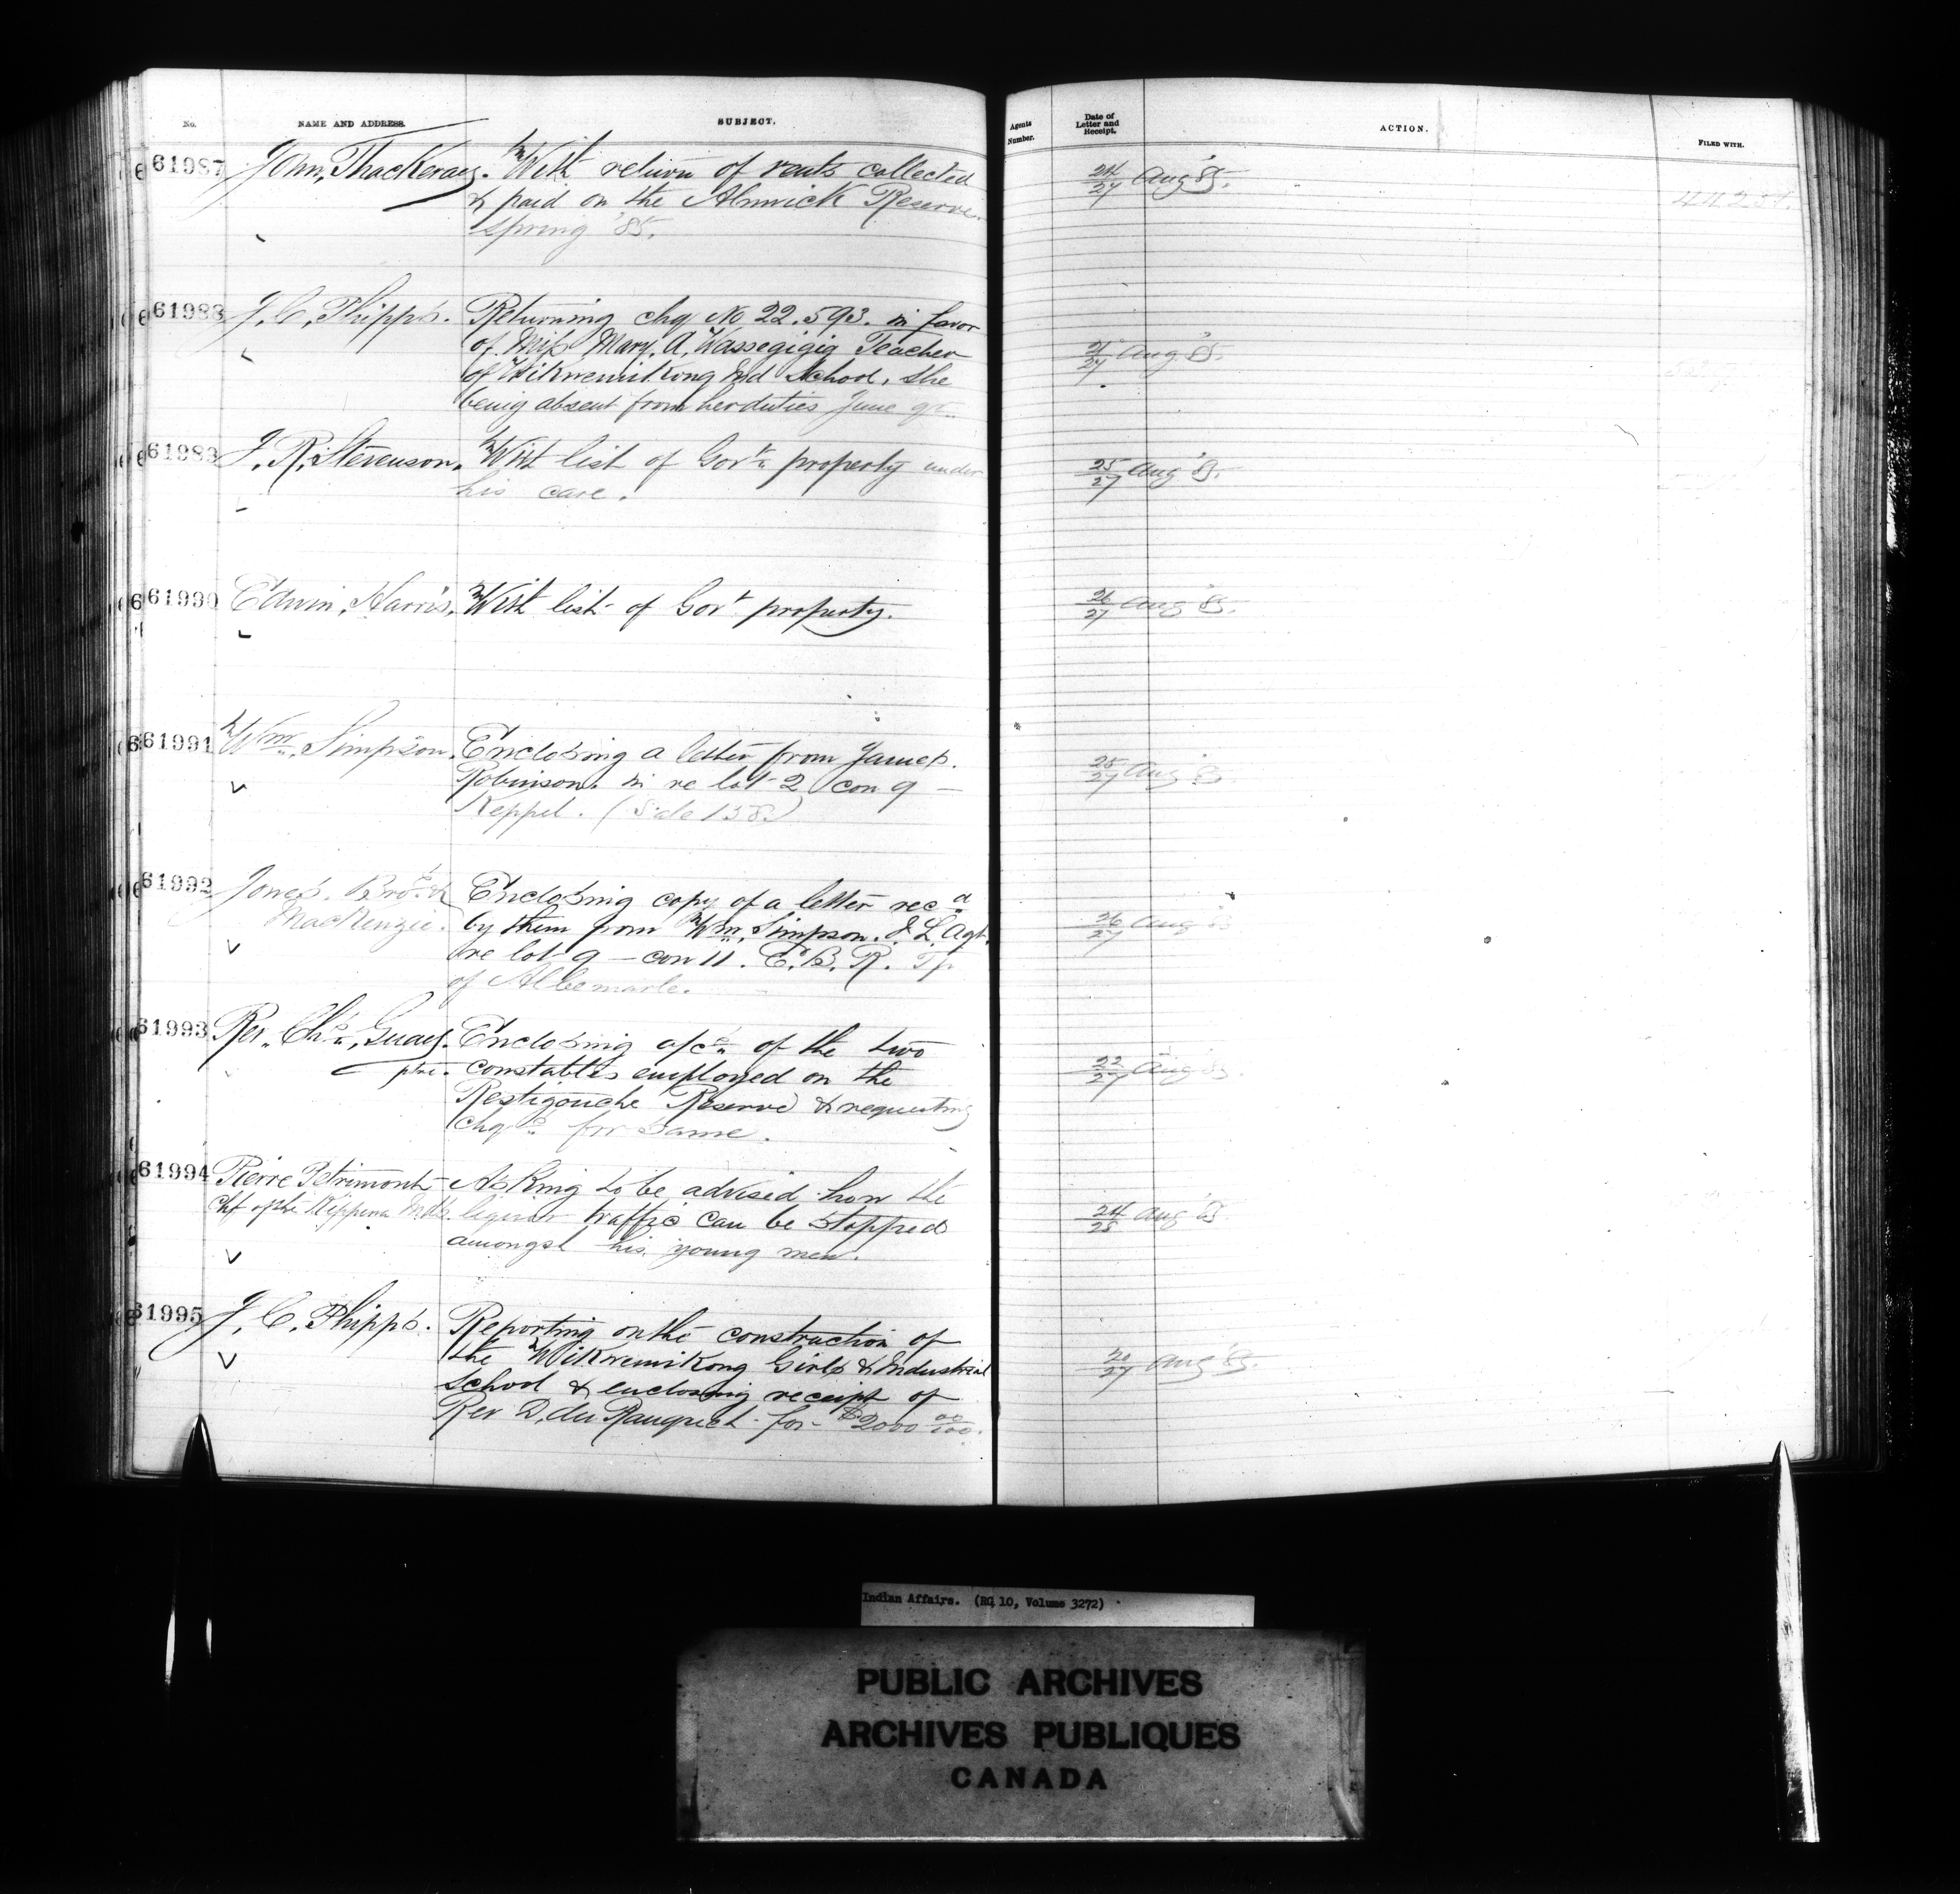 No.
NAME AND ADDRESS.
SUBJECT.
Agents Number.
Date of Letter and Receipt.
ACTION.
FILED WITH.
61987
John, Thackeray.
With return of rents collected
& paid on the Alnwick Reserve
Spring '85.
24/27 Aug '85.
61988
J. C. Phipps.
Returning chq No 22.593. in favor
of Miss Mary. A. Wassegigig Teacher
of Wikwemikong Ind School, she
being absent from her duties June qr.
27 Aug '85.
61989
J. R. Stevenson.
With list of Govt. property under
his care.
25/27 Aug '85.
61990
Edwin, Harris.
With list of Govt property.
26/27 Aug '85.
61991
Wm. Simpson.
Enclosing a letter from James.
Robinson. in re lot 2 con 9 —
Keppel. (Sale 138)
25/27 Aug '85
61992
Jones. Bros. &
MacKenzie.
Enclosing copy of a letter recd
by them from Wm. Simpson. I. L. Agt.
re lot 9 — con 11. E. B. R. Tp
of Albemarle.
26/27 Aug '85
61993
Rev. Chs. Guay.
ptre.
Enclosing a/cs. of the two
constables employed on the
Restigouche Reserve & requesting
Chqs for same.
22/27 Aug '85.
61994
Pierre Petrimont
Chf of the Kippewa Inds.
Asking to be advised how the
liquor traffic can be stopped
amongst his young men.
24/28 Aug '85.
61995
J. C. Phipps.
Reporting on the construction of
the Wikwemikong Girls & Industrial
School & enclosing receipt of
Rev D. du Ranquet for $2000 00/100.
20/27 Aug '85.
Indian Affairs. (RG 10, Volume 3272)
PUBLIC ARCHIVES
ARCHIVES PUBLIQUES
CANADA